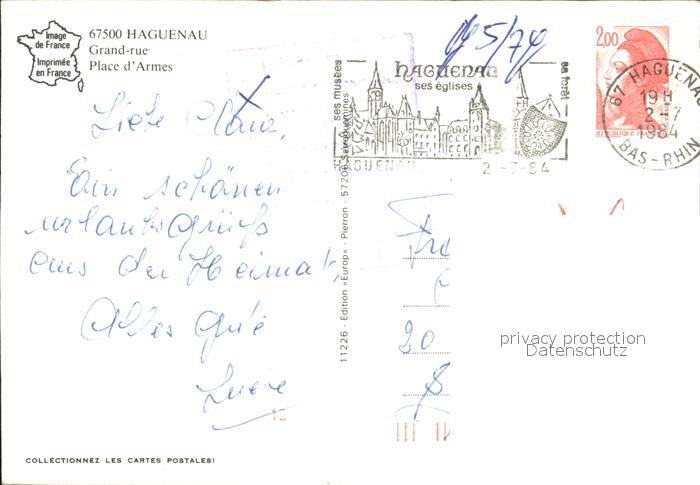 Image
de France
Imprimée
en France
67500 HAGUENAU
Grand-rue
Place d'Armes
Liebe
Ein schönen
urlaubsgrüß
aus der Heimat,
Alles
COLLECTIONNEZ LES CARTES POSTALES!
11226 - Edition «Europ» - Pierron - 57206 Sarreguemines
ses musées
HAGUENAU
ses églises
sa forêt
HAGUENAU
2 -7-84
2,00
67 HAGUENAU
19H
2 -7
1984
BAS-RHIN
20
privacy protection
Datenschutz
12